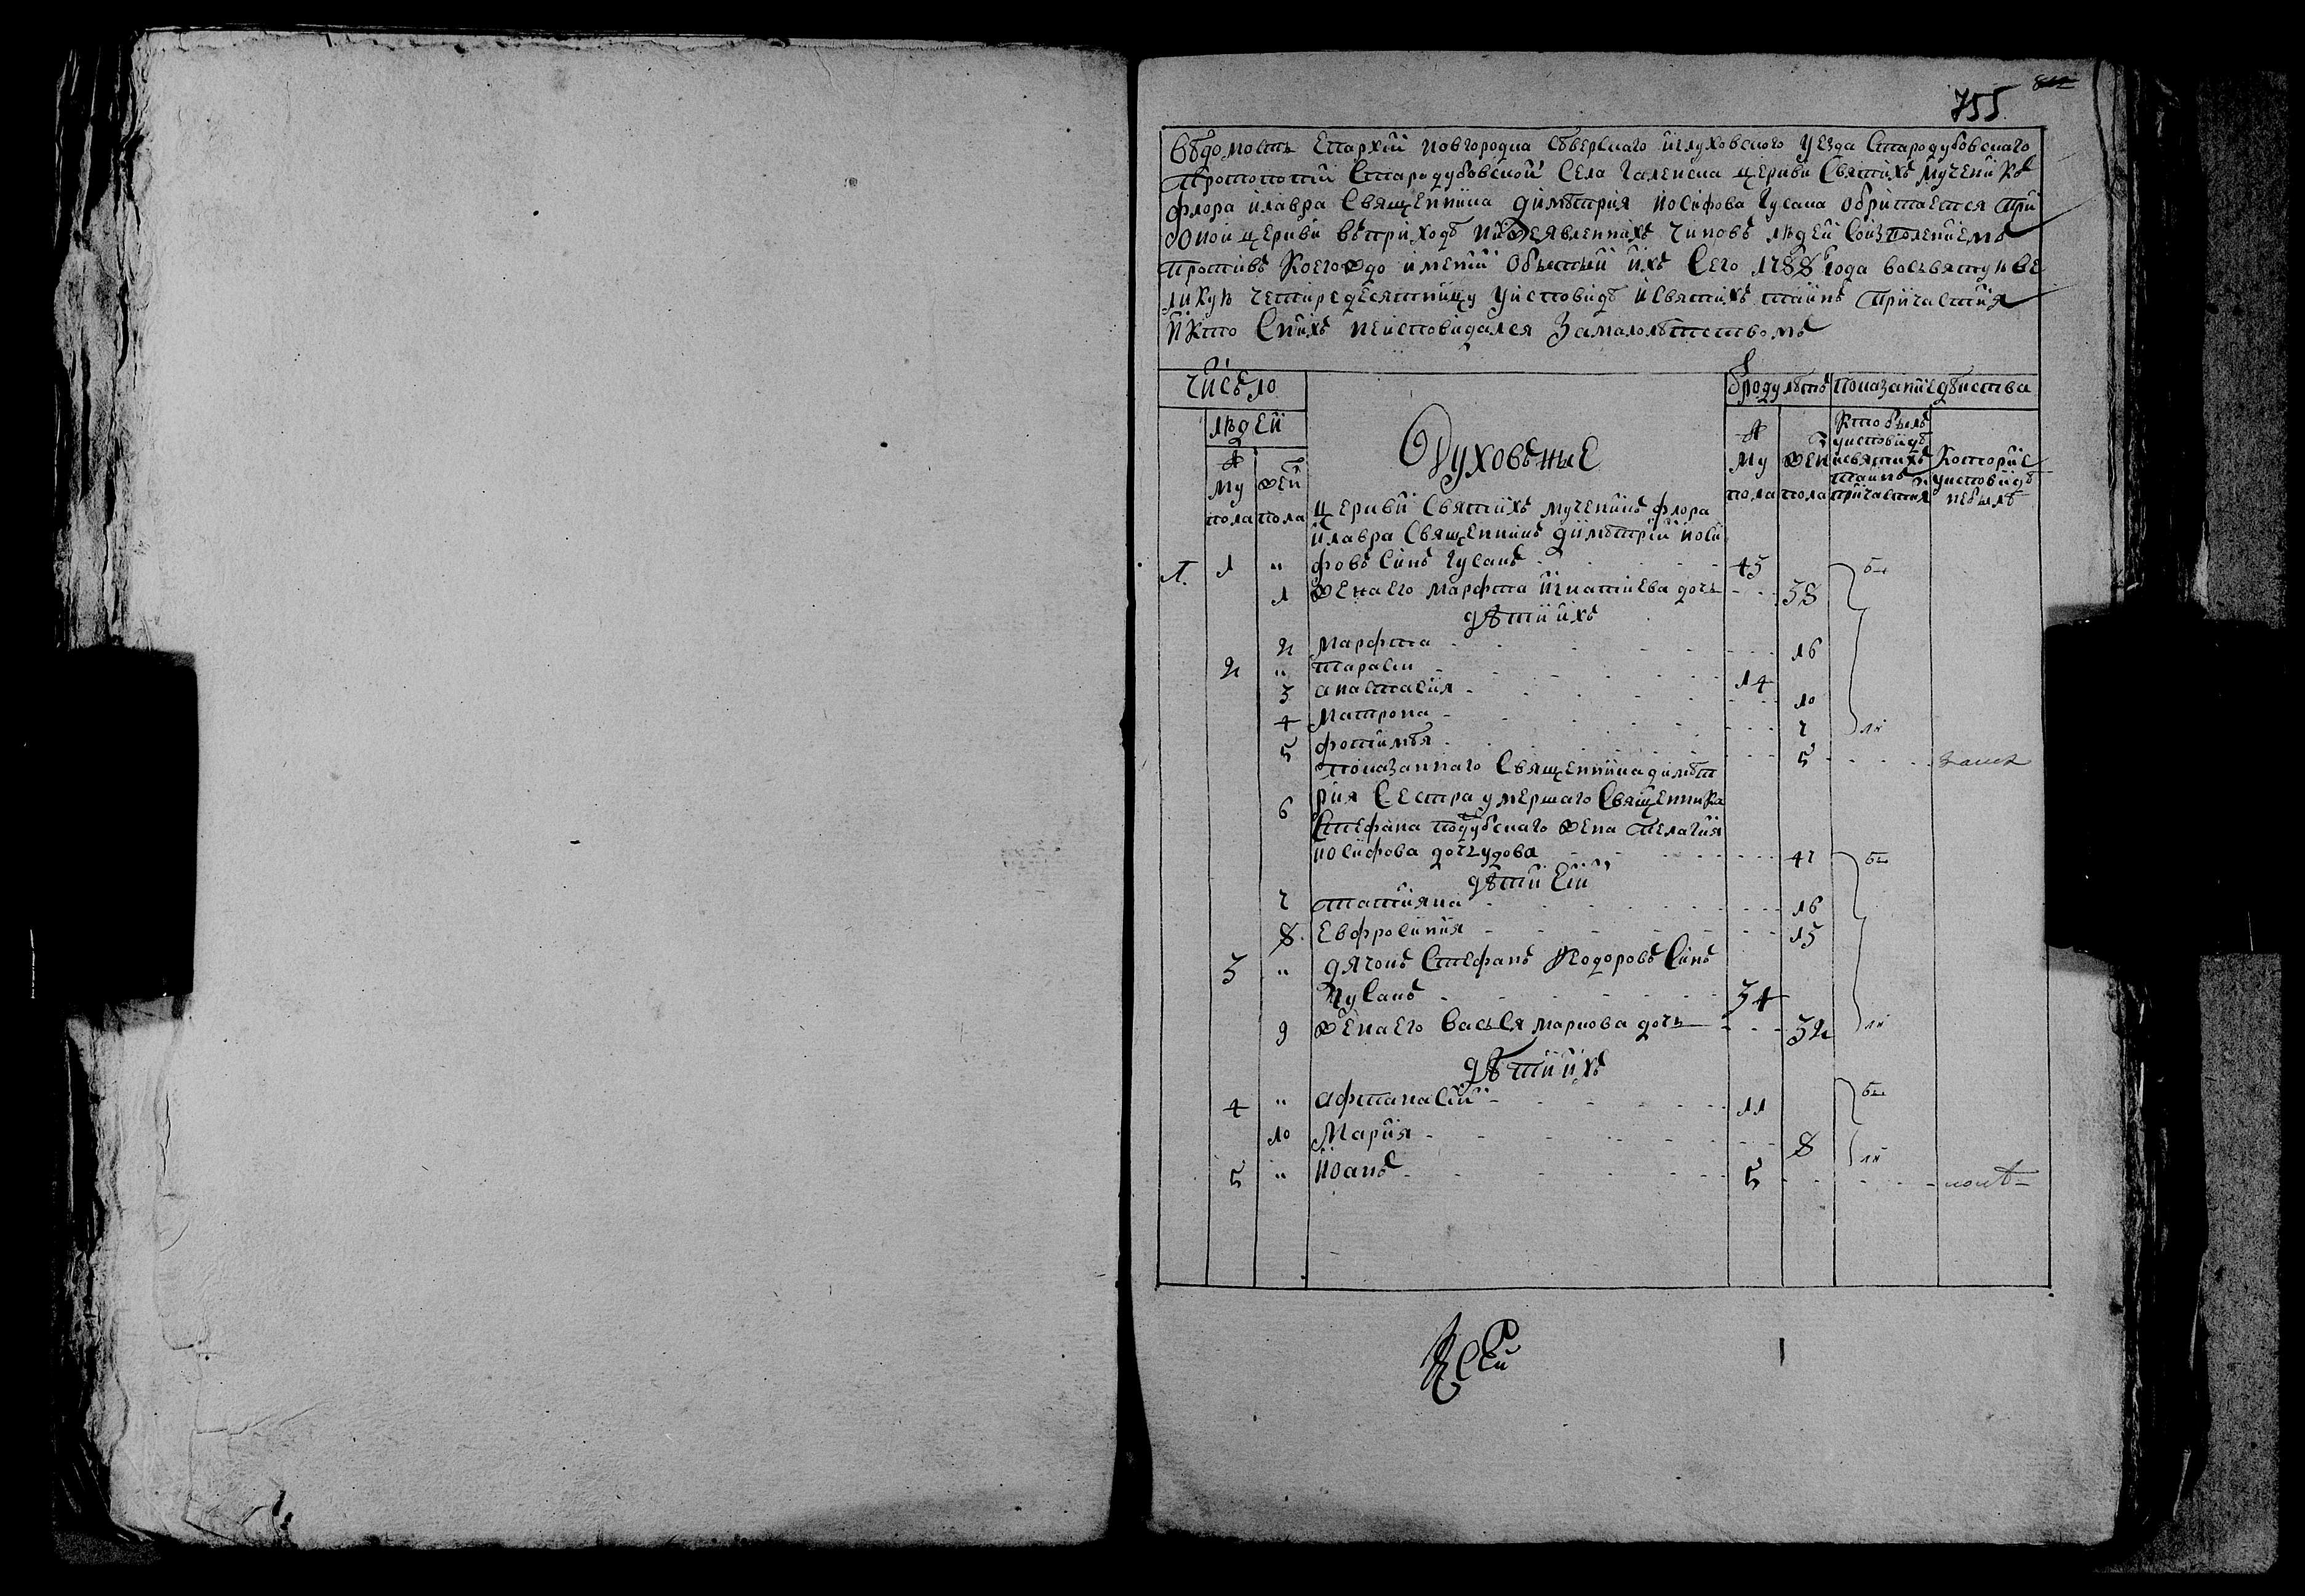 755
Вѣдомость Епархіи новгородка Сѣверскаго иглуховского уезда Стародубовскаго
Протопопіи Стародубовской Села Галенска церкви Святихъ мученикъ
флора илавра Священника димѣтрія иосифова Чусака обритается при
оной церкви въприходѣ нижеявленнихъ чиновъ людей Соизполениемъ
противъ коегождо имений бытый ихъ Сего 1788 года восвятую ве
ликую четиредесятницу уисповиди исвятихъ таинъ причастия
икто Снихъ неисповидался Замалолѣтствомъ
Число
людей
му пола
жен пола
Духовъные
от роду лѣтъ
му пола
жен пола
показание дѣиства
кто былъ уисповиди исвятихъ таинъ причастия
которіе уисповиди небылѣ
церкви Святихъ мученикъ флора
илавра Священникъ димѣтрій иоси
1. 1 " фовъ Синъ Чусакъ 45
1 жена его марфта игнатиева дочь 38
дѣти ихъ
2 Марфта 16
2 " тараси 14
3 анастасия 10
4 Матрона 7
5 фотимѣя 5
показаннаго Священника димѣт
6 рия Сестра умершаго Священника
Стефана поддубскаго жена пелагия
иосифова дочъ удова 47
дѣти Ей
7 татияна 16
8 Евфросиния 15
3 " дячокъ Стефанъ Феодоровъ Синъ
Чусакъ 34
9 жена его Васъся маркова дочь 32
дѣти ихъ
4 " афтанасий 11
10 Мария 8
5 " иоанъ 5